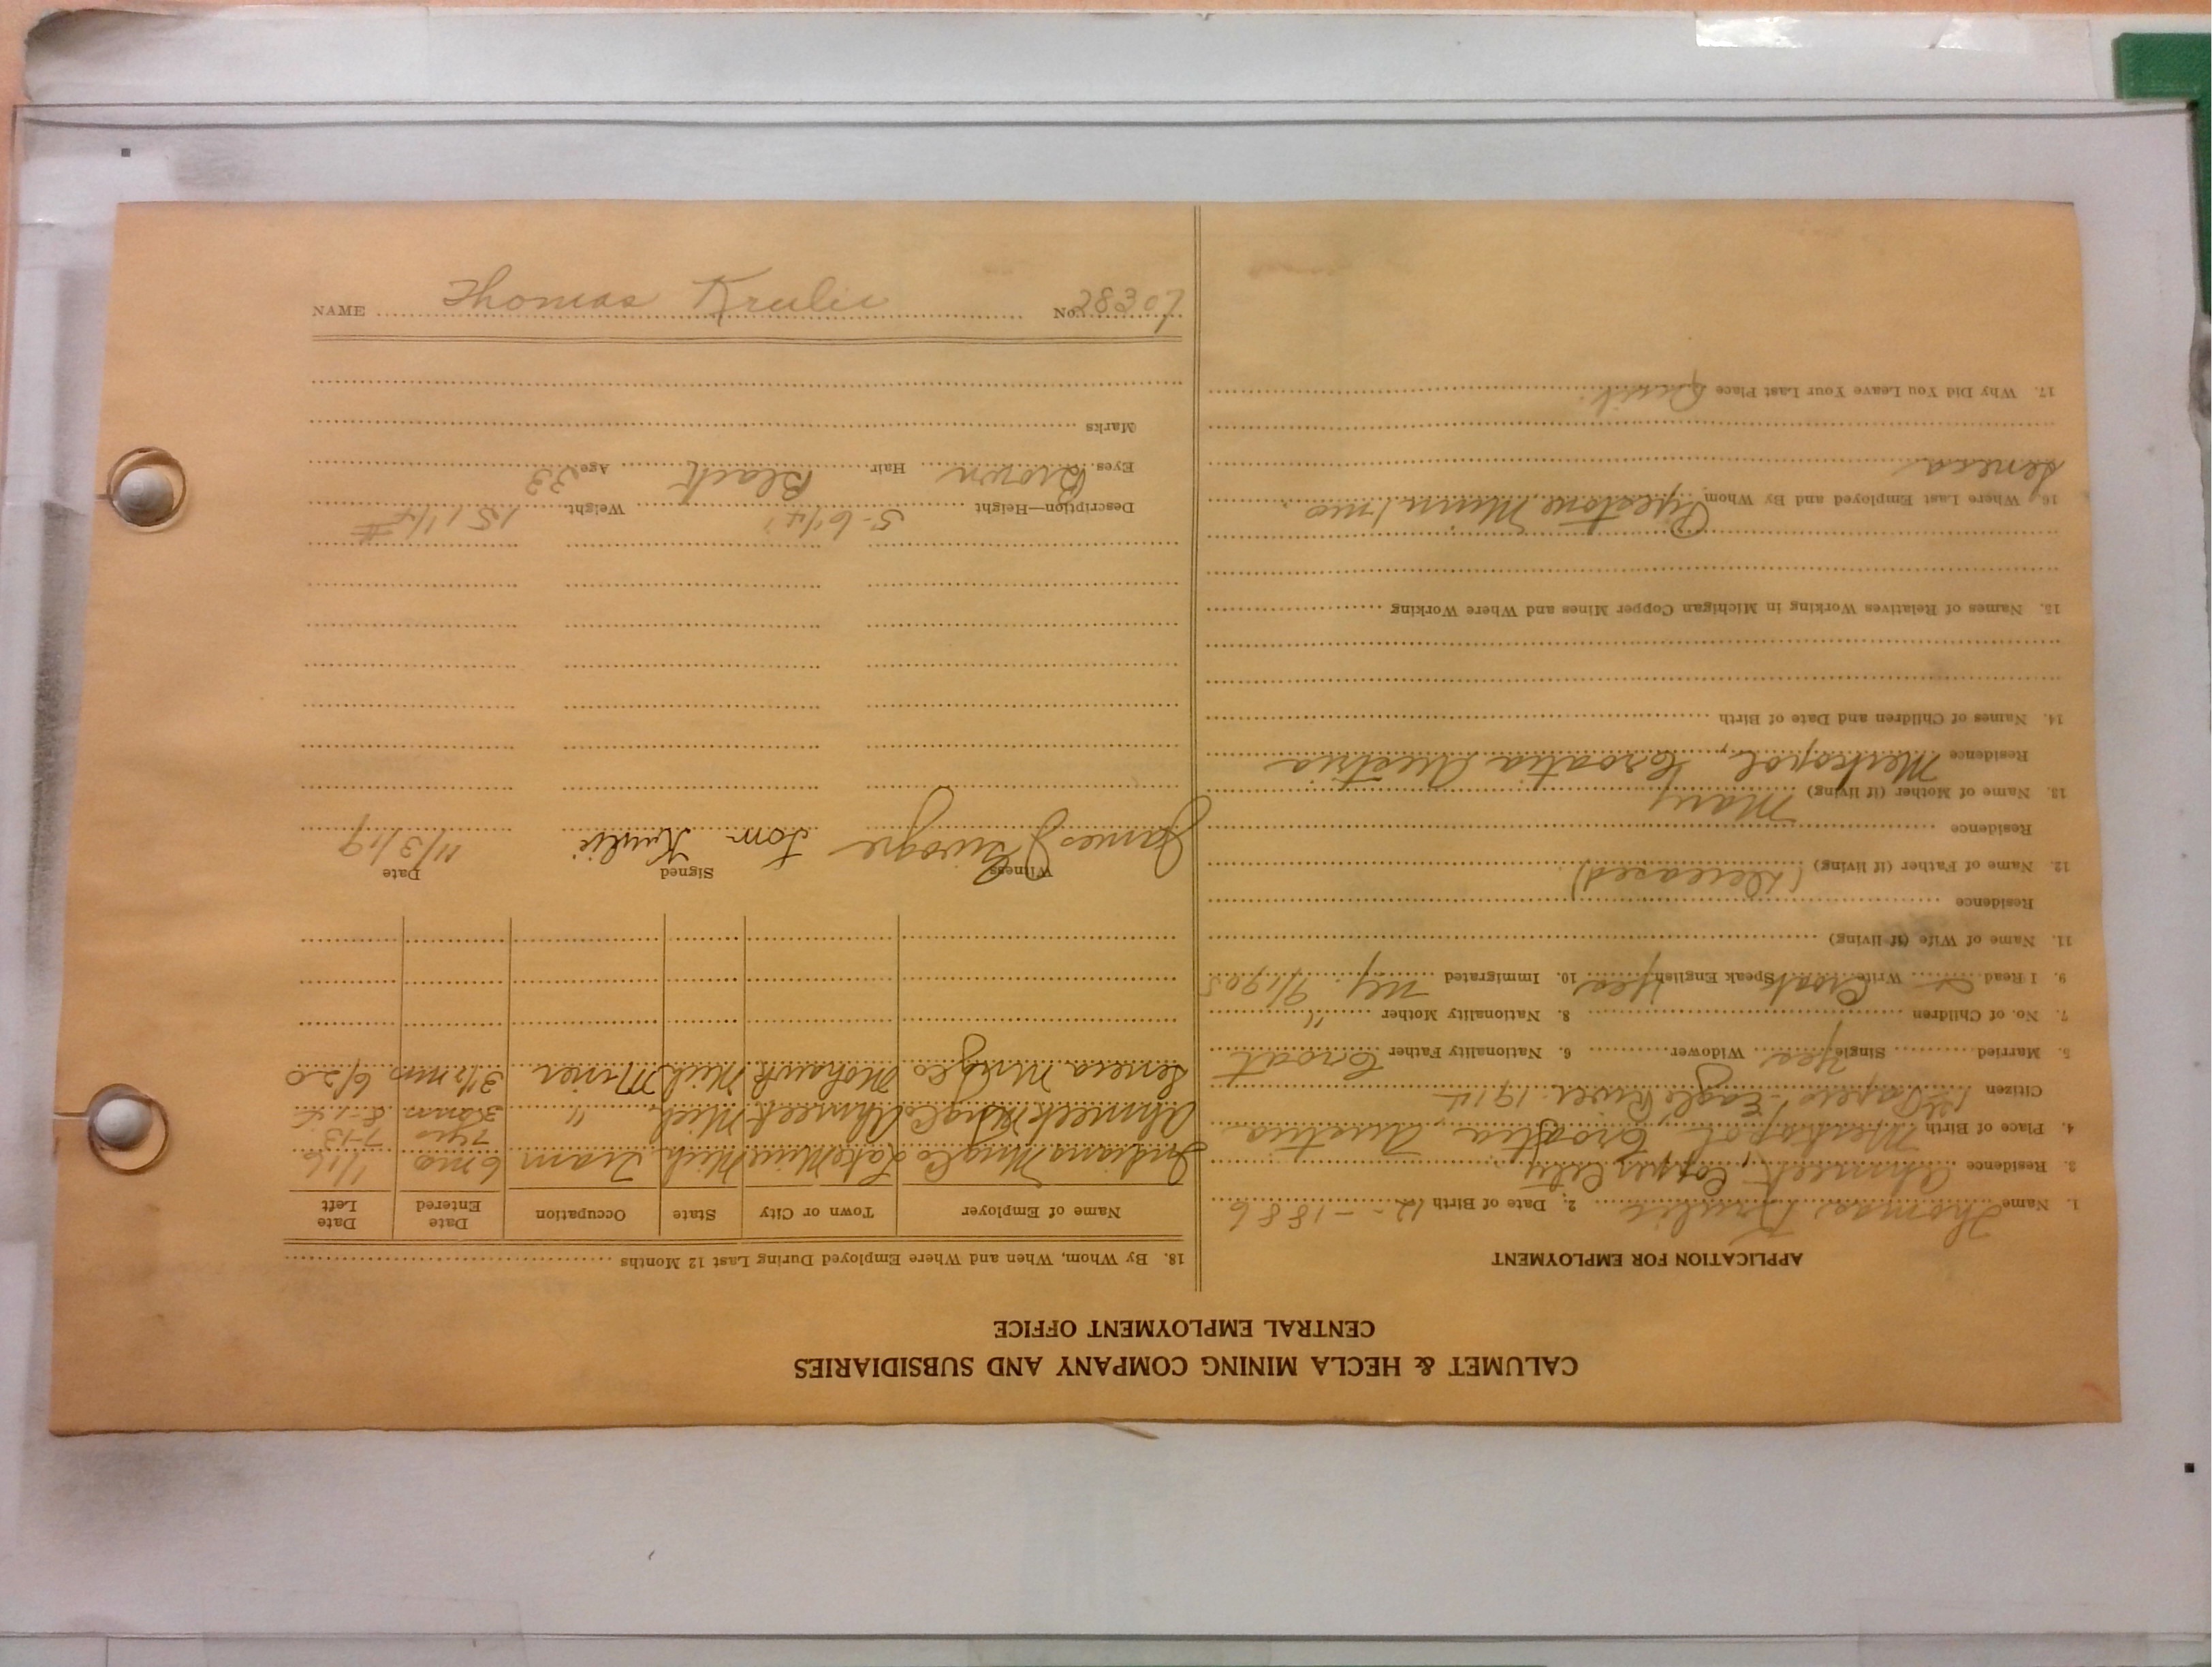 CALUMET & HECLA MINING COMPANY AND SUBSIDIARIES
CENTRAL EMPLOYMENT OFFICE
APPLICATION FOR EMPLOYMENT
1. Name Thomas Krulic 2. Date of Birth 12 - - 1886
3. Residence Ahmeek, Copper City
4. Place of Birth Merkopol Croatia, Austria
Citizen 1st Papers - Eagle River. 1914
5. Married Single Yes Widower 6. Nationality Father Croat
7. No. of Children 8. Nationality Mother "
9. I Read & Write Croat Speak English Yes 10. Immigrated N.Y. 9/1905
11. Name of Wife (if living)
Residence
12. Name of Father (if living) (Deceased)
Residence
13. Name of Mother (if living) Mary
Residence Merkopol, Croatia Austria
14. Names of Children and Date of Birth
15. Names of Relatives Working in Michigan Copper Mines and Where Working
16. Where Last Employed and By Whom Pipestone Minn 1 mo.
Seneca
17. Why Did You Leave Your Last Place Quit.
18. By Whom, When and Where Employed During Last 12 Months
Name of Employer Town or City State Occupation Date Entered Date Left
Indiana Mng Co Lake Mine Mich Tram 6 mo 1/16
7 yrs 7-13
Ahmeek Mng Co Ahmeek Mich "
Seneca Mng Co Mohawk Mich Miner 3 1/2 mos 6/20
Witness Signed Date
James J Tom Krulic 11/3/19
Description—Height 5-6 1/4" Weight 151 1/4 #
Eyes Brown Hair Black Age 33
Marks
NAME Thomas Krulic No. 28307